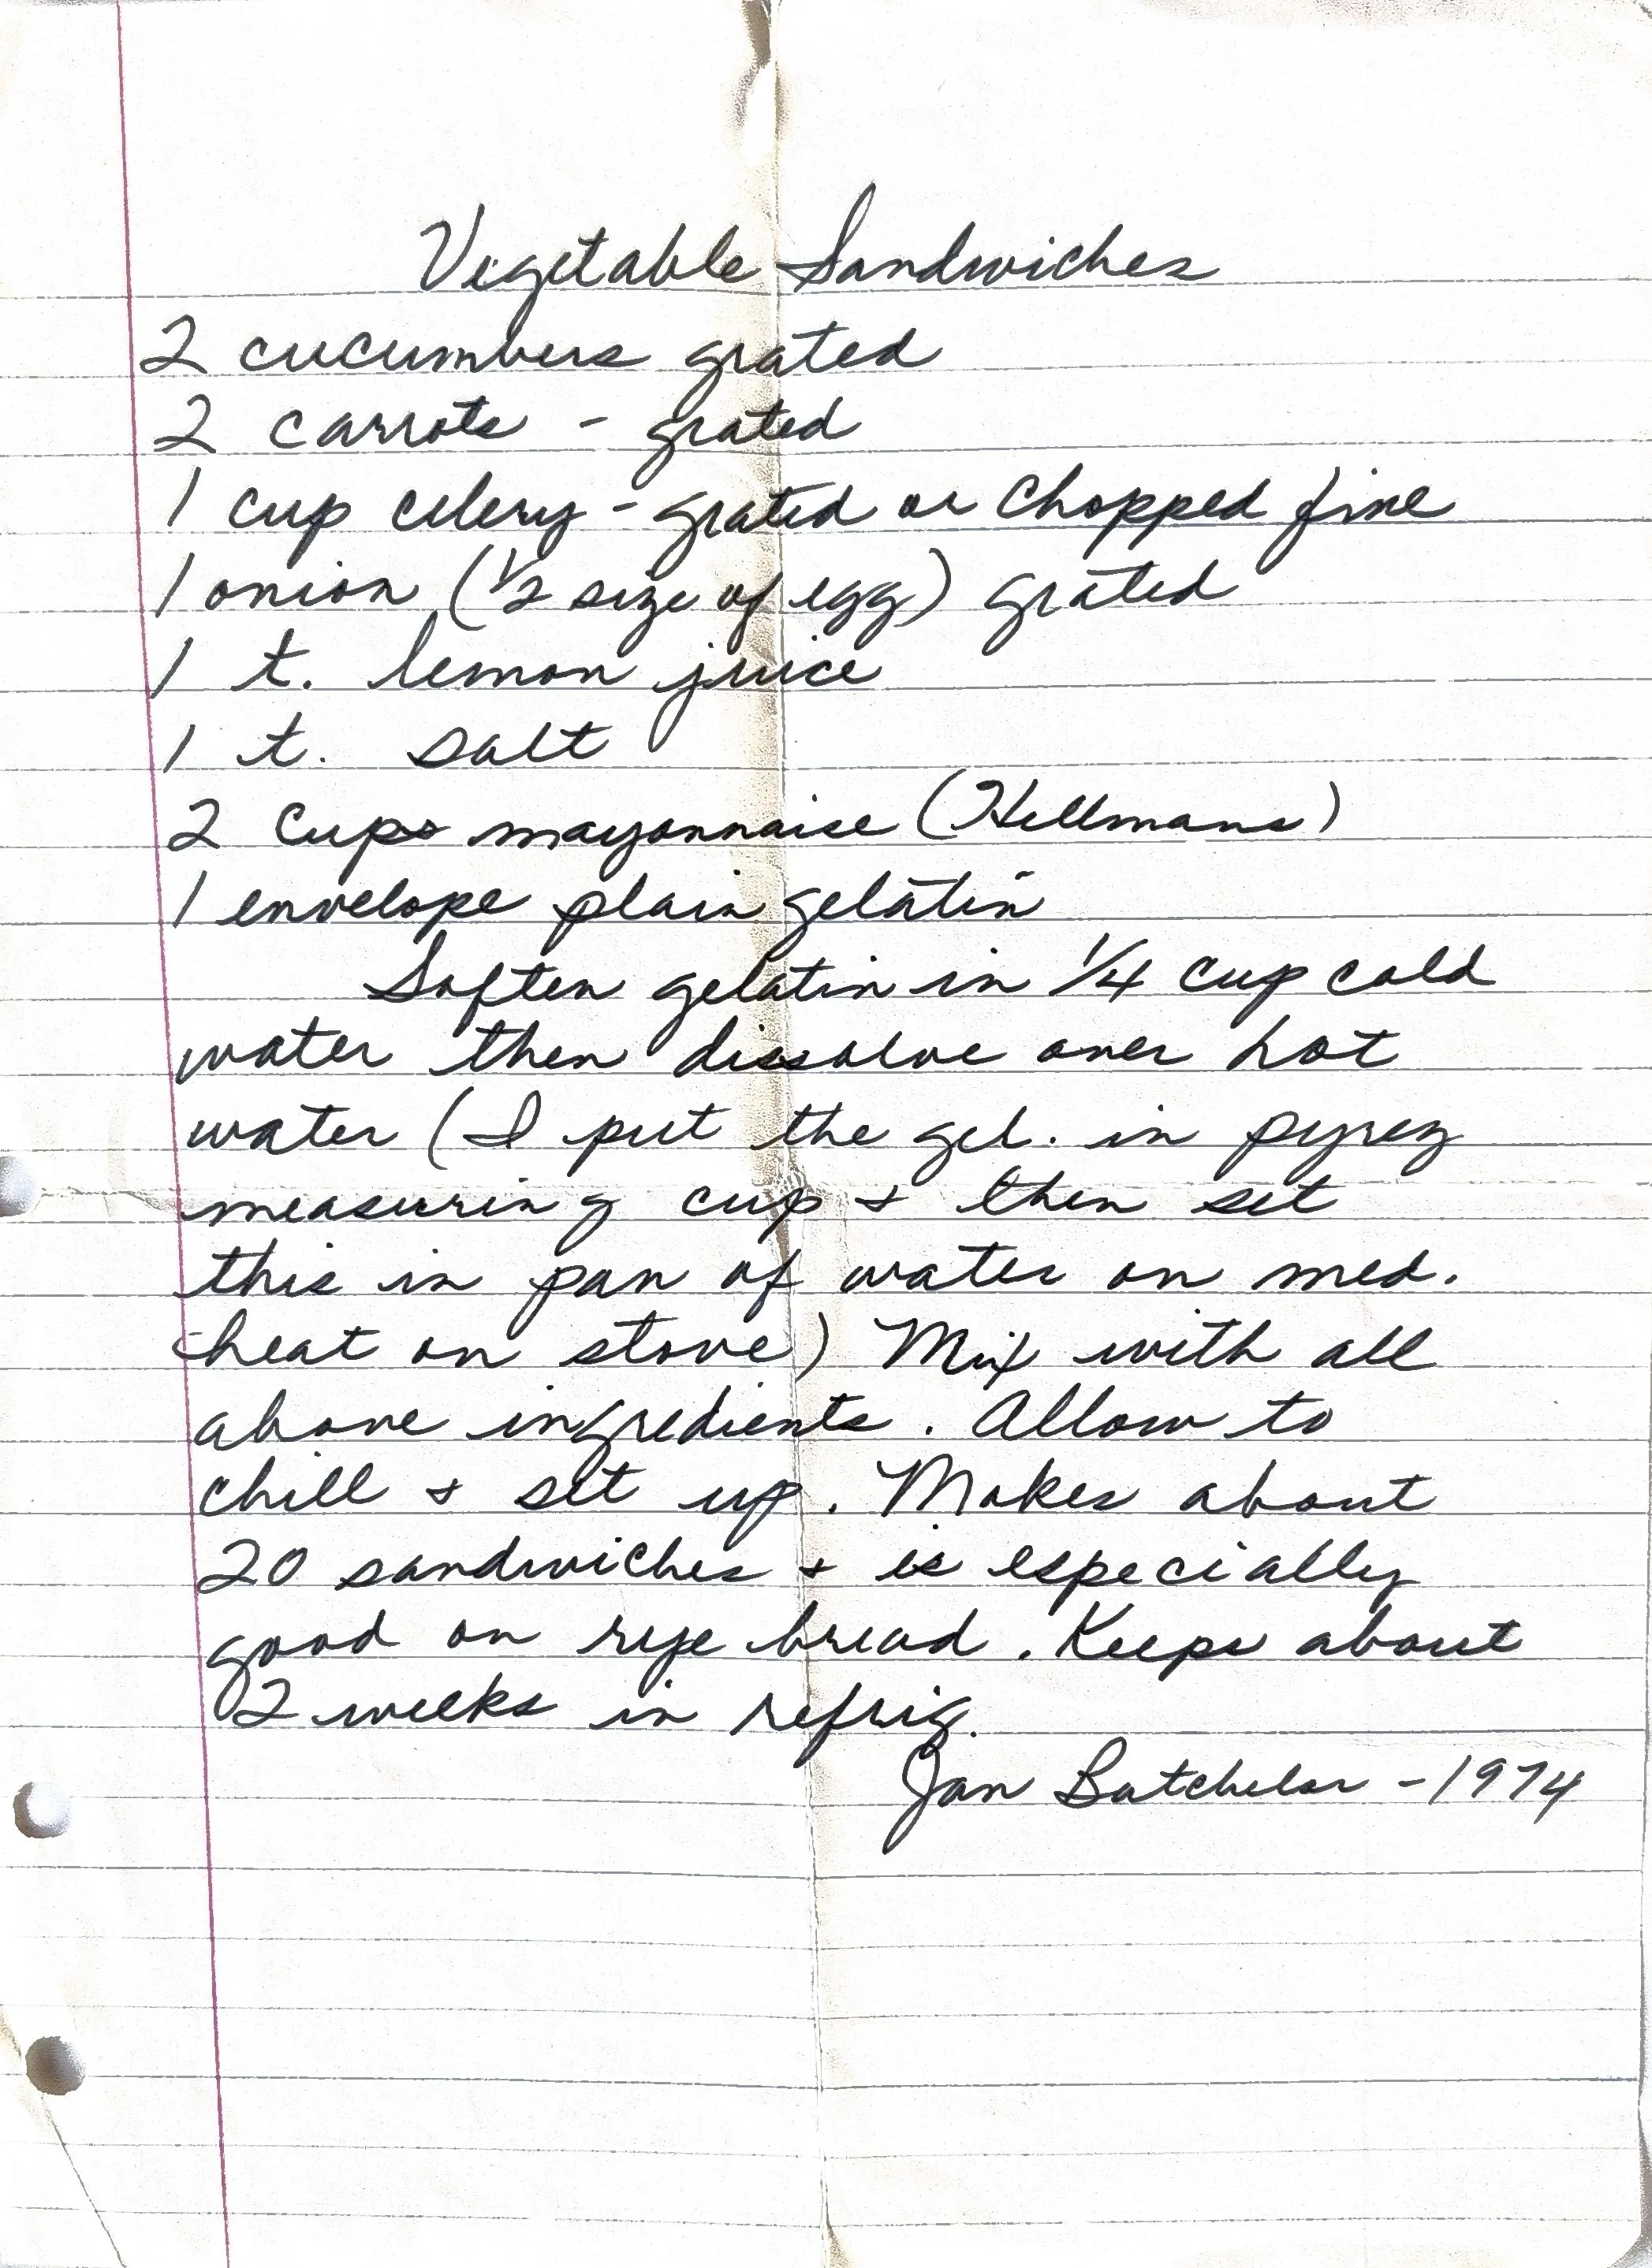 Vegetable Sandwiches
2 cucumbers grated
2 carrots - grated
1 cup celery - grated or chopped fine
1 onion (1/2 size of egg) grated
1 t. lemon juice
1 t. salt
2 cups mayonnaise (Hellmans)
1 envelope plain gelatin
Soften gelatin in 1/4 cup cold
water then dissolve over hot
water (I put the gel. in pyrex
measuring cup + then set
this in pan of water on med.
heat on stove) Mix with all
above ingredients. Allow to
chill + set up. Makes about
20 sandwiches + is especially
good on rye bread. Keeps about
2 weeks in refrig.
Jan Batchelor - 1974